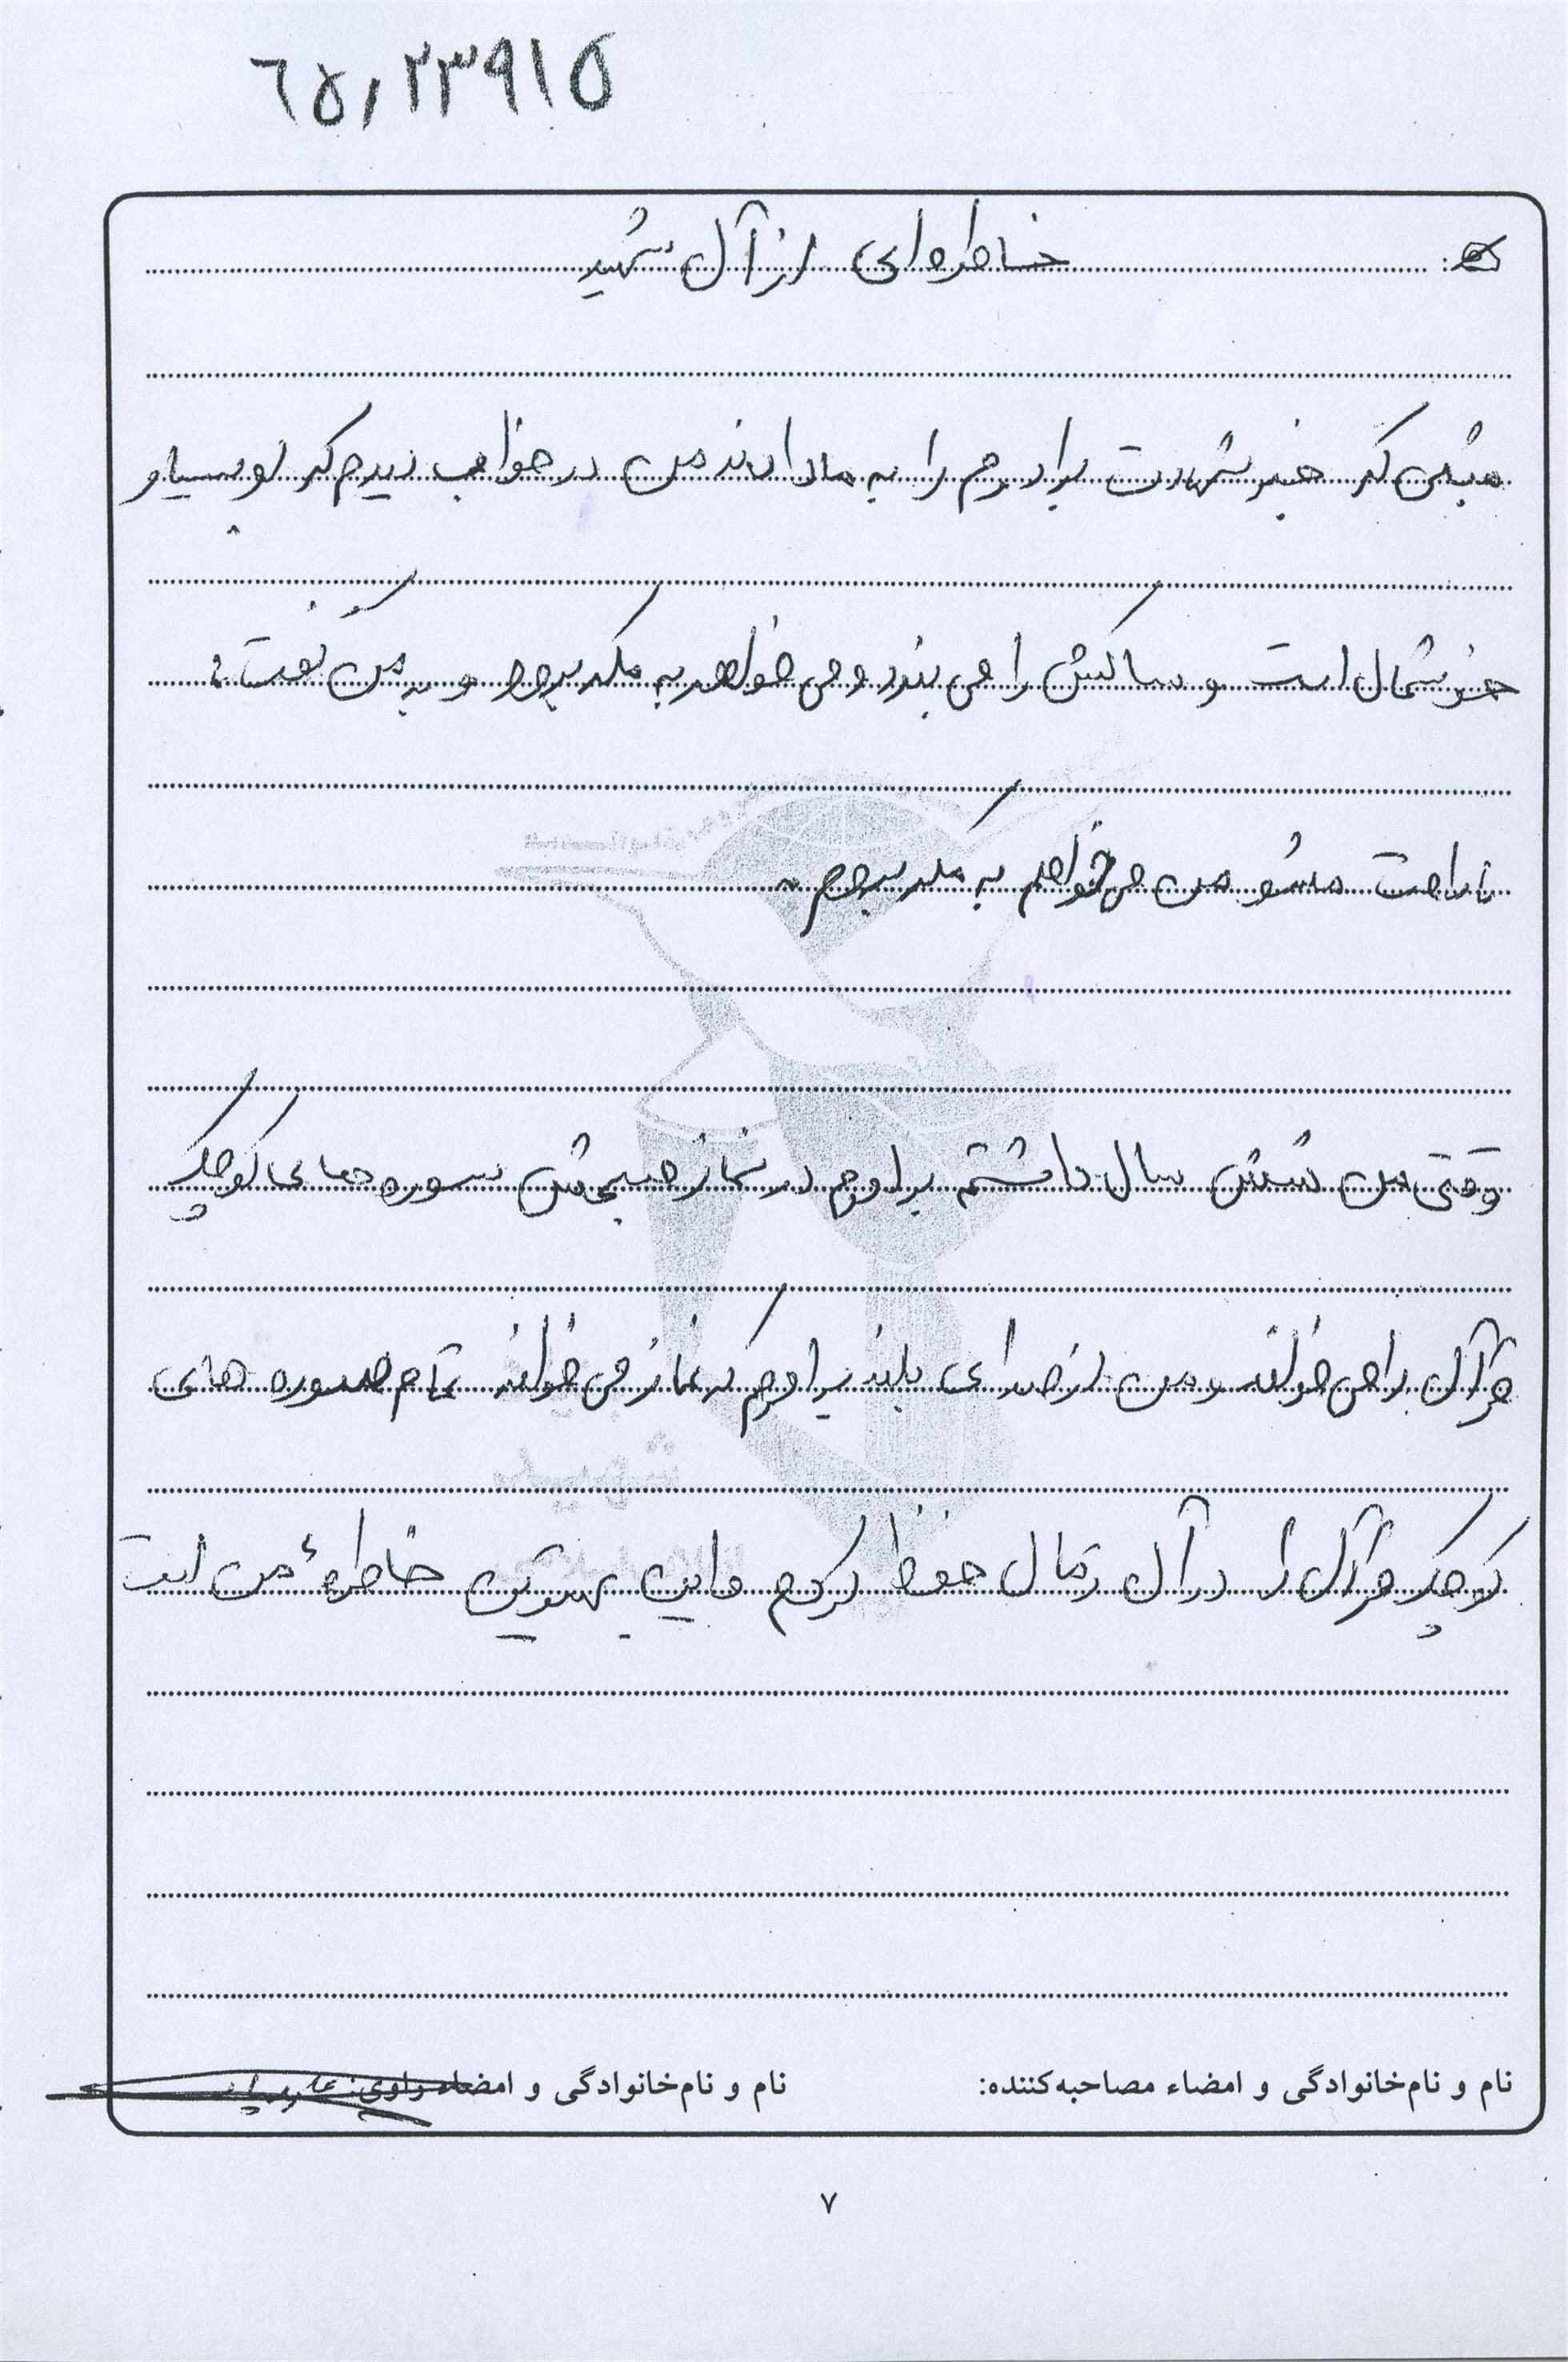 ٦٥٫٢٣٩١٥
خاطره‌ای از آن شهید
شبی که خبر شهادت برادرم را به ما دادند من در خواب دیدم که او بسیار
خوشحال است و ساکش را می بندد و می خواهد به مکه برود و به من گفت:
ناراحت مشو من می‌خواهم به مکه بروم.
وقتی من شش سال داشتم برادرم در نماز صبحش سوره های کوچک
قرآن را می خواند و من از صدای بلند برادرم که نماز می خواند تمام سوره های
کوچک قرآن را در آن زمان حفظ کردم و این بهترین خاطرهٔ من است
نام و نام‌خانوادگی و امضاء مصاحبه‌کننده:
نام و نام‌خانوادگی و امضاء راوی:
۷